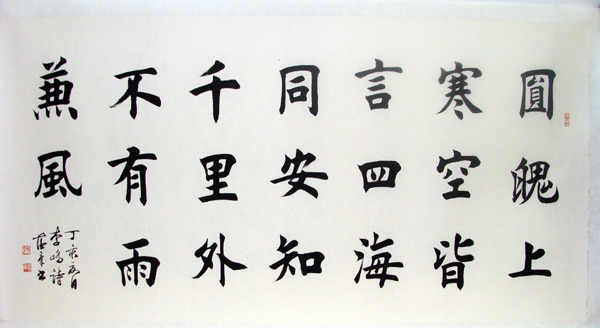 圓魄上
寒空皆
言四海
同安知
千里外
不有雨
兼風
丁亥日
李嶠詩